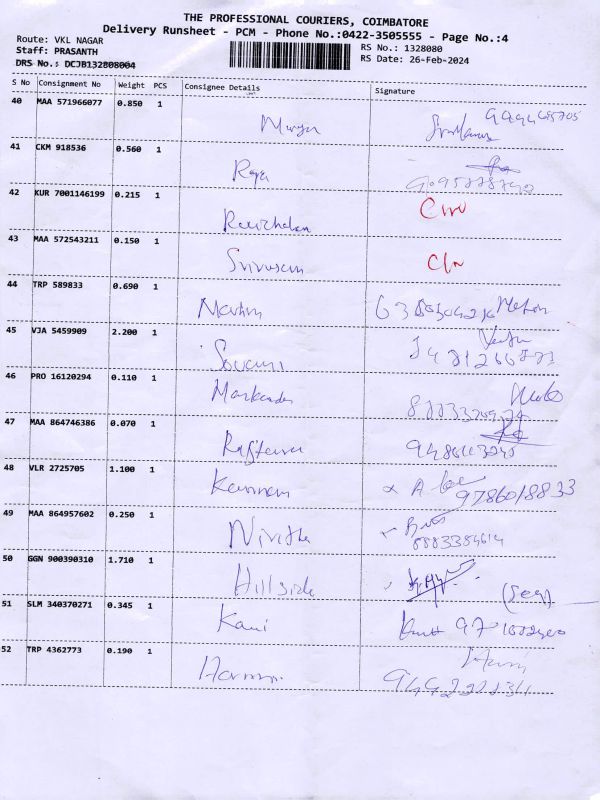 THE PROFESSIONAL COURIERS, COIMBATORE
Delivery Runsheet - PCM - Phone No.:0422-3505555 - Page No.:4
Route: VKL NAGAR
RS No.: 1328080
Staff: PRASANTH
RS Date: 26-Feb-2024
DRS No.: DCJB132808004
S No Consignment No Weight PCS Consignee Details Signature
40 MAA 571966077 0.850 1
41 CKM 918536 0.560 1 Raja
42 KUR 7001146199 0.215 1
43 MAA 572543211 0.150 1
44 TRP 589833 0.690 1
45 VJA 5459909 2.200 1
46 PRO 16120294 0.110 1
47 MAA 864746386 0.070 1
48 VLR 2725705 1.100 1 Kannan 9786018833
49 MAA 864957602 0.250 1 Nivitha 8883384614
50 GGN 900390310 1.710 1 Hillside
51 SLM 340370271 0.345 1 Kavi
52 TRP 4362773 0.190 1